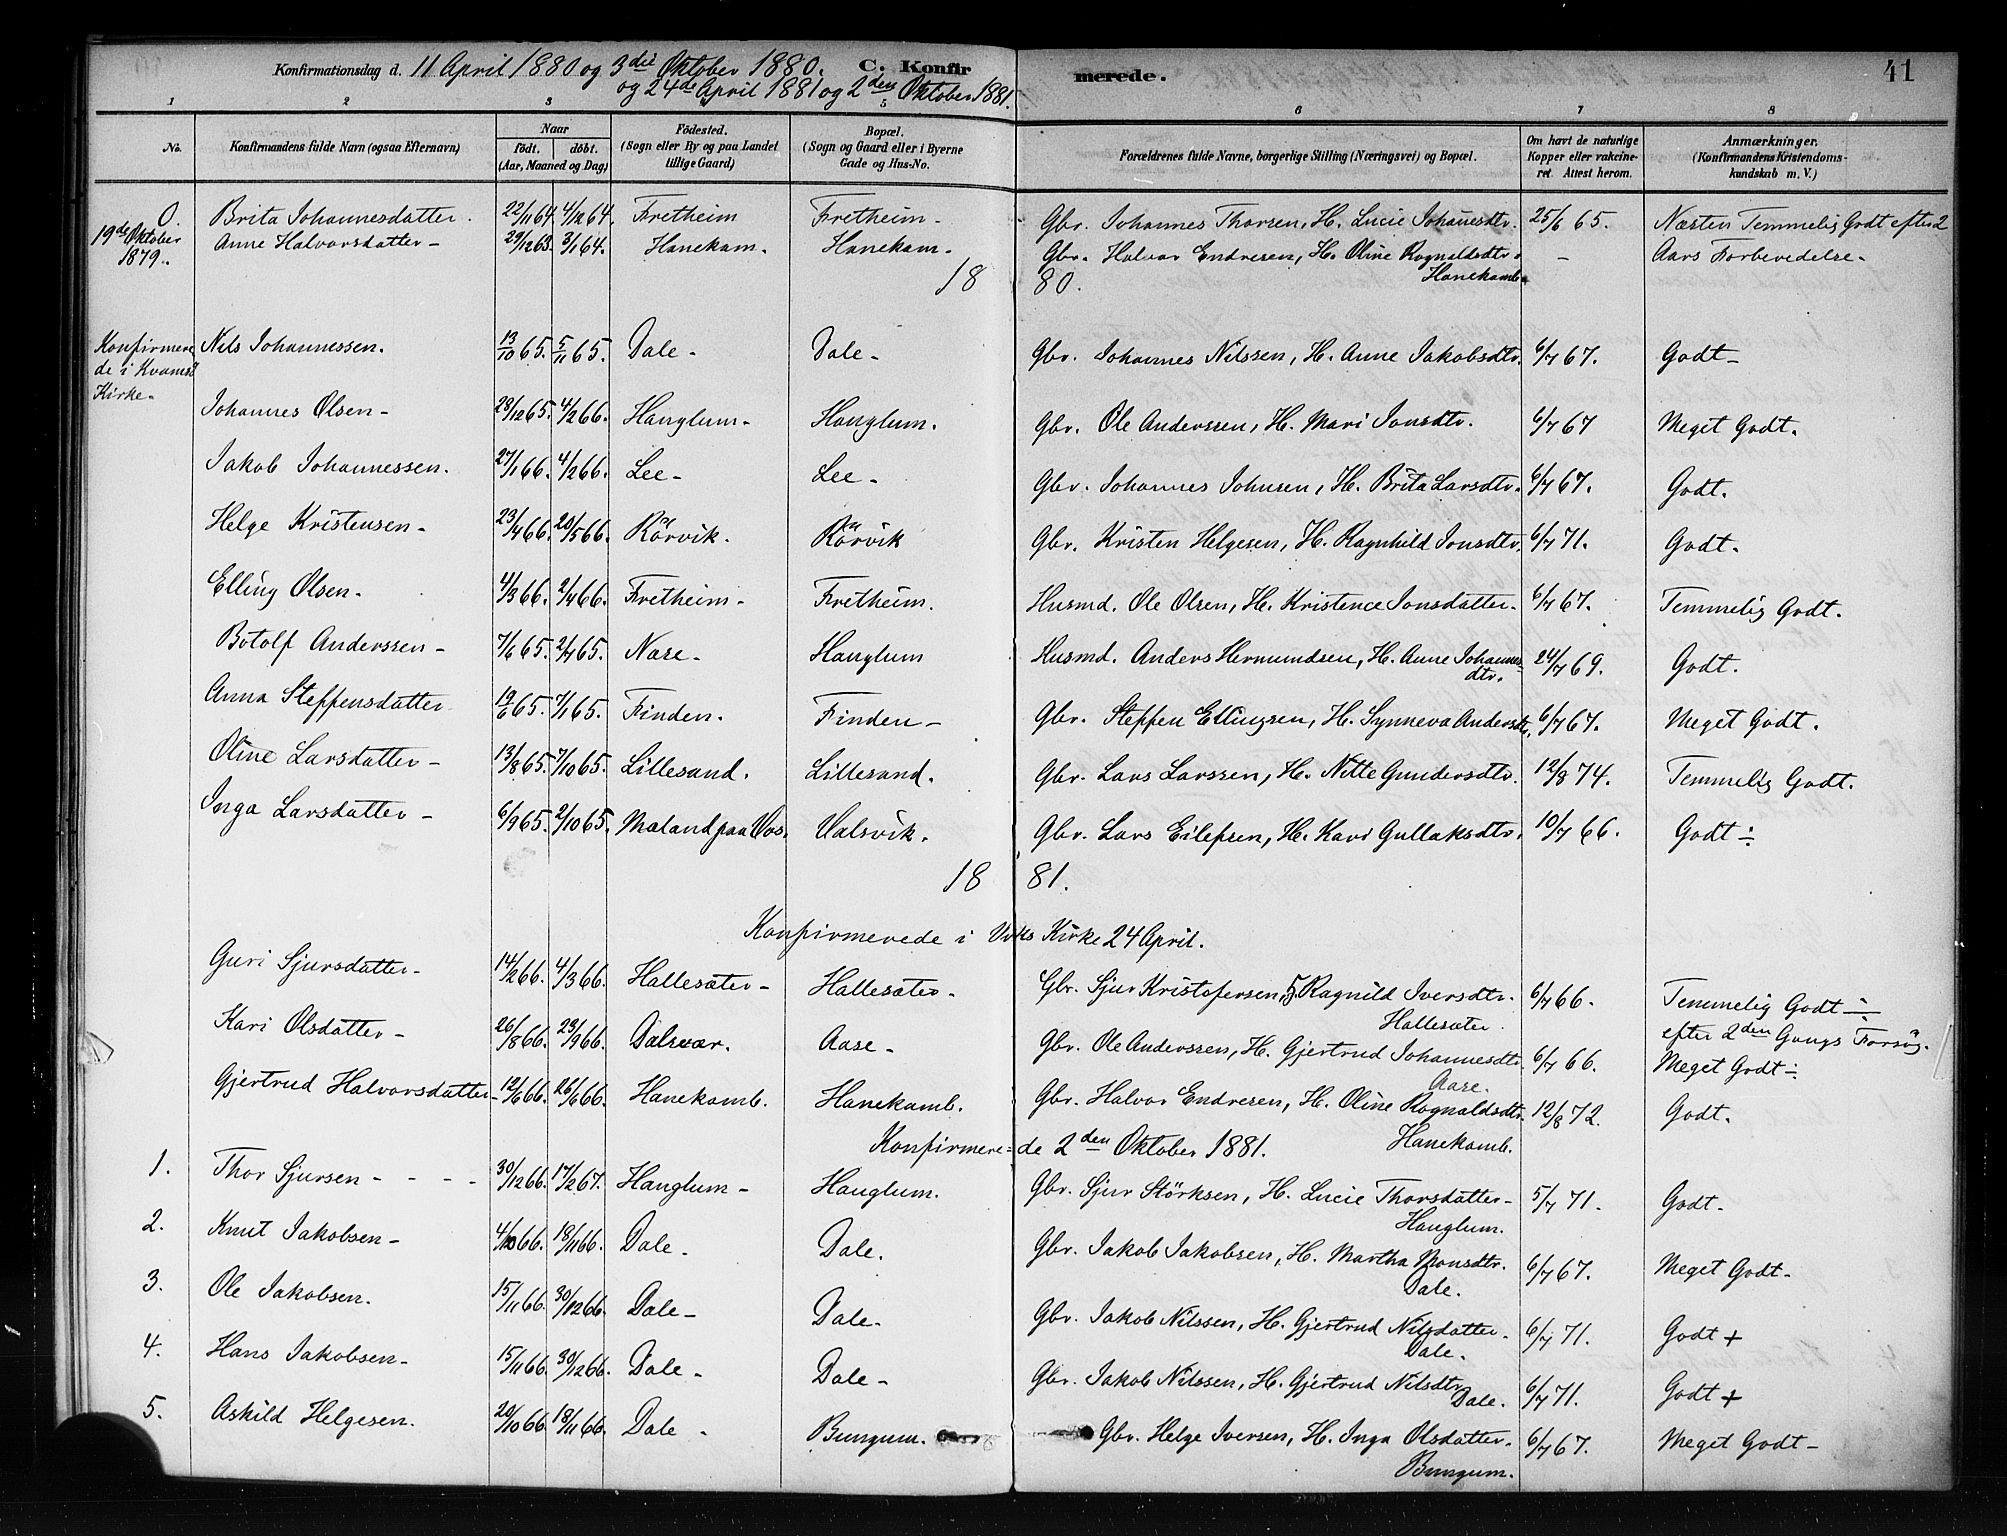 Konfirmationsdag d. 11 April 1880 og 3die Oktober 1880. C. Konfirmerede. 41
og 24de April 1881 og 2den Oktober 1881.
1 2 3 4 5 6 7 8
No. Konfirmandens fulde Navn (ogsaa Efternavn) Naar födt. döbt. (Aar, Maaned og Dag) Födested. (Sogn eller By og paa Landet tillige Gaard) Bopæl. (Sogn og Gaard eller i Byerne Gade og Hus-No. Forældrenes fulde Navne, borgerlige Stilling (Næringsvei) og Bopæl. Om havt de naturlige Kopper eller vakcineret. Attest herom. Anmærkninger. (Konfirmandens Kristendomskundskab m. V.)
0. Brita Johannesdatter. 22/11 64. 4/12 64. Fretheim Fretheim- Gbr. Johannes Thorsen, H. Lucie Johanesdtr. 25/6 65. Næsten Temmelig Godt efter 2
19de Oktober 1879. Anne Halvorsdatter- 29/12 63. 3/1 64. Hanekam. Hanekam- Gbr. Halvor Endresen, H. Oline Rognaldsdtr. - Aars Forberedelse-
Hanekamb.
1880.
Konfirmerede i Kvamsø Kirke- Nils Johannessen. 13/10 65. 5/11 65. Dale- Dale- Gbr. Johannes Nilssen, H. Anne Jakobsdtr. 6/7 67. Godt-
Johannes Olsen- 29/12 65. 4/2 66. Hanglum- Hanglum. Gbr. Ole Anderssen, H. Mari Jonsdtr. 6/7 67 Meget Godt.
Jakob Johannessen. 27/1 66. 4/2 66. Lee- Lee- Gbr. Johannes Johnsen, H. Brita Larsdtr. 6/7 67. Godt.
Helge Kristensen- 23/4 66. 20/5 66. Rörvik. Rörvik Gbr. Kristen Helgesen, H. Ragnhild Jonsdtr. 6/7 71. Godt.
Elling Olsen- 4/3 66. 2/4 66. Fretheim- Fretheim. Husmd. Ole Olsen, H. Kristence Jonsdatter- 6/7 67. Temmelig Godt.
Botolf Anderssen- 7/6 65. 2/7 65. Nase- Hanglum Husmd. Anders Hermundsen, H. Anne Johannesdtr. 24/7 69. Godt.
Anna Steffensdatter 19/6 65. 7/1 65. Finden. Finden- Gbr. Steffen Ellingsen, H. Synneva Andersdtr. 6/7 67. Meget Godt.
Oline Larsdatter- 13/8 65. 7/10 65. Lillesand. Lillesand. Gbr. Lars Larssen, H. Nille Gundersdtr. 12/8 74. Temmelig Godt.
Inga Larsdatter- 6/9 65. 2/10 65. Mæland paa Vos. Valsvik. Gbr. Lars Eilefsen, H. Kari Gullaksdtr. 10/7 66. Godt ÷
1881.
Konfirmerede i Viks Kirke 24 April.
Guri Sjursdatter- 14/2 66. 4/3 66. Hallesæter- Hallesæter- Gbr. Sjur Kristofersen, H. Ragnild Iversdtr. 6/7 66. Temmelig Godt ÷
Hallesæter. efter 2den Gangs Forsøg.
Kari Olsdatter- 26/8 66. 23/9 66. Dalsvær. Aase- Gbr. Ole Anderssen, H. Gjertrud Johannesdtr. 6/7 66. Meget Godt ÷
Aase.
Gjertrud Halvorsdatter- 12/6 66. 26/6 66. Hanekamb. Hanekamb. Gbr. Halvor Endresen, H. Oline Rognaldsdtr. 12/8 72. Godt.
Hanekamb.
Konfirmerede 2den Oktober 1881.
1. Thor Sjursen - - - - 30/12 66. 17/2 67. Hanglum- Hanglum. Gbr. Sjur Störksen, H. Lucie Thorsdatter- 5/7 71. Godt-
Hanglum.
2. Knut Jakobsen- 4/10 66. 18/11 66. Dale- Dale. Gbr. Jakob Jakobsen, H. Martha Monsdtr. 6/7 67. Meget Godt-
Dale.
3. Ole Jakobsen. 15/11 66. 30/12 66. Dale- Dale- Gbr. Jakob Nilssen, H. Gjertrud Nilsdatter- 6/7 71. Godt +
Dale.
4. Hans Jakobsen- 15/11 66. 30/12 66. Dale- Dale- Gbr. Jakob Nilssen, H. Gjertrud Nilsdtr 6/7 71. Godt +
Dale.
5. Askild Helgesen. 20/10 66. 18/11 66. Dale- Bungum. Gbr. Helge Iversen, H. Inga Olsdatter- 6/7 67. Meget Godt-
Bungum.